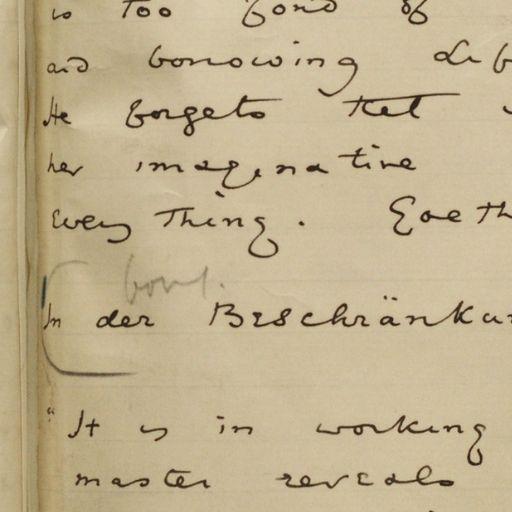 is too fond of
and borrowing
He forgets that
her imaginative
Every Thing. Goeth
In der Beschränku
"It is in working
master reveals